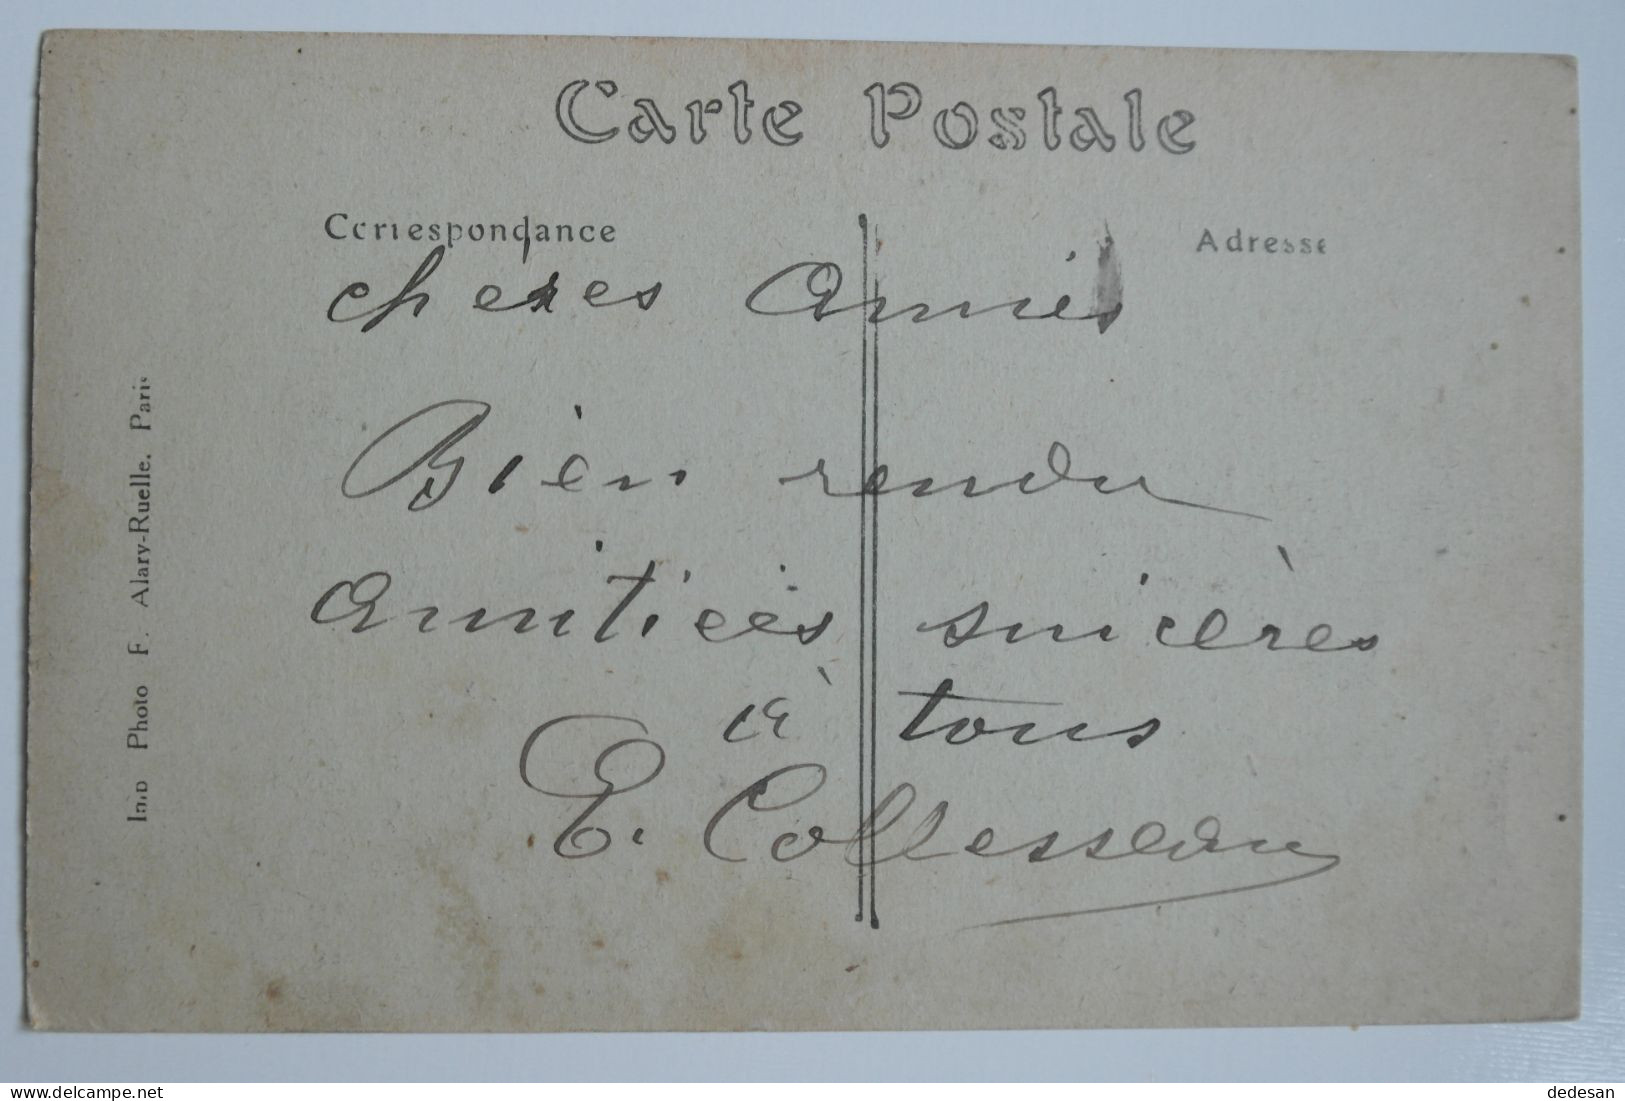 Carte Postale
Correspondance
Adresse
chères Amies
Bien rendu
Amitiées sincères
à tous
E. Collesseau
Imp Photo F. Alary-Ruelle. Paris
www.delcampe.net
dedesan